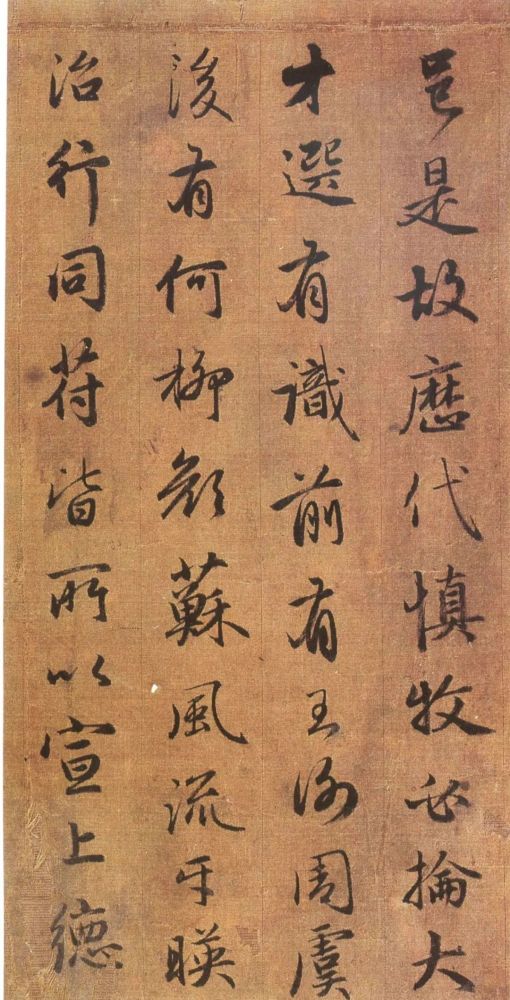 邑是故歷代慎牧必掄大
才選有識前有王謝周虞
後有何柳顔蘇風流互暎
治行同符皆所以宣上德